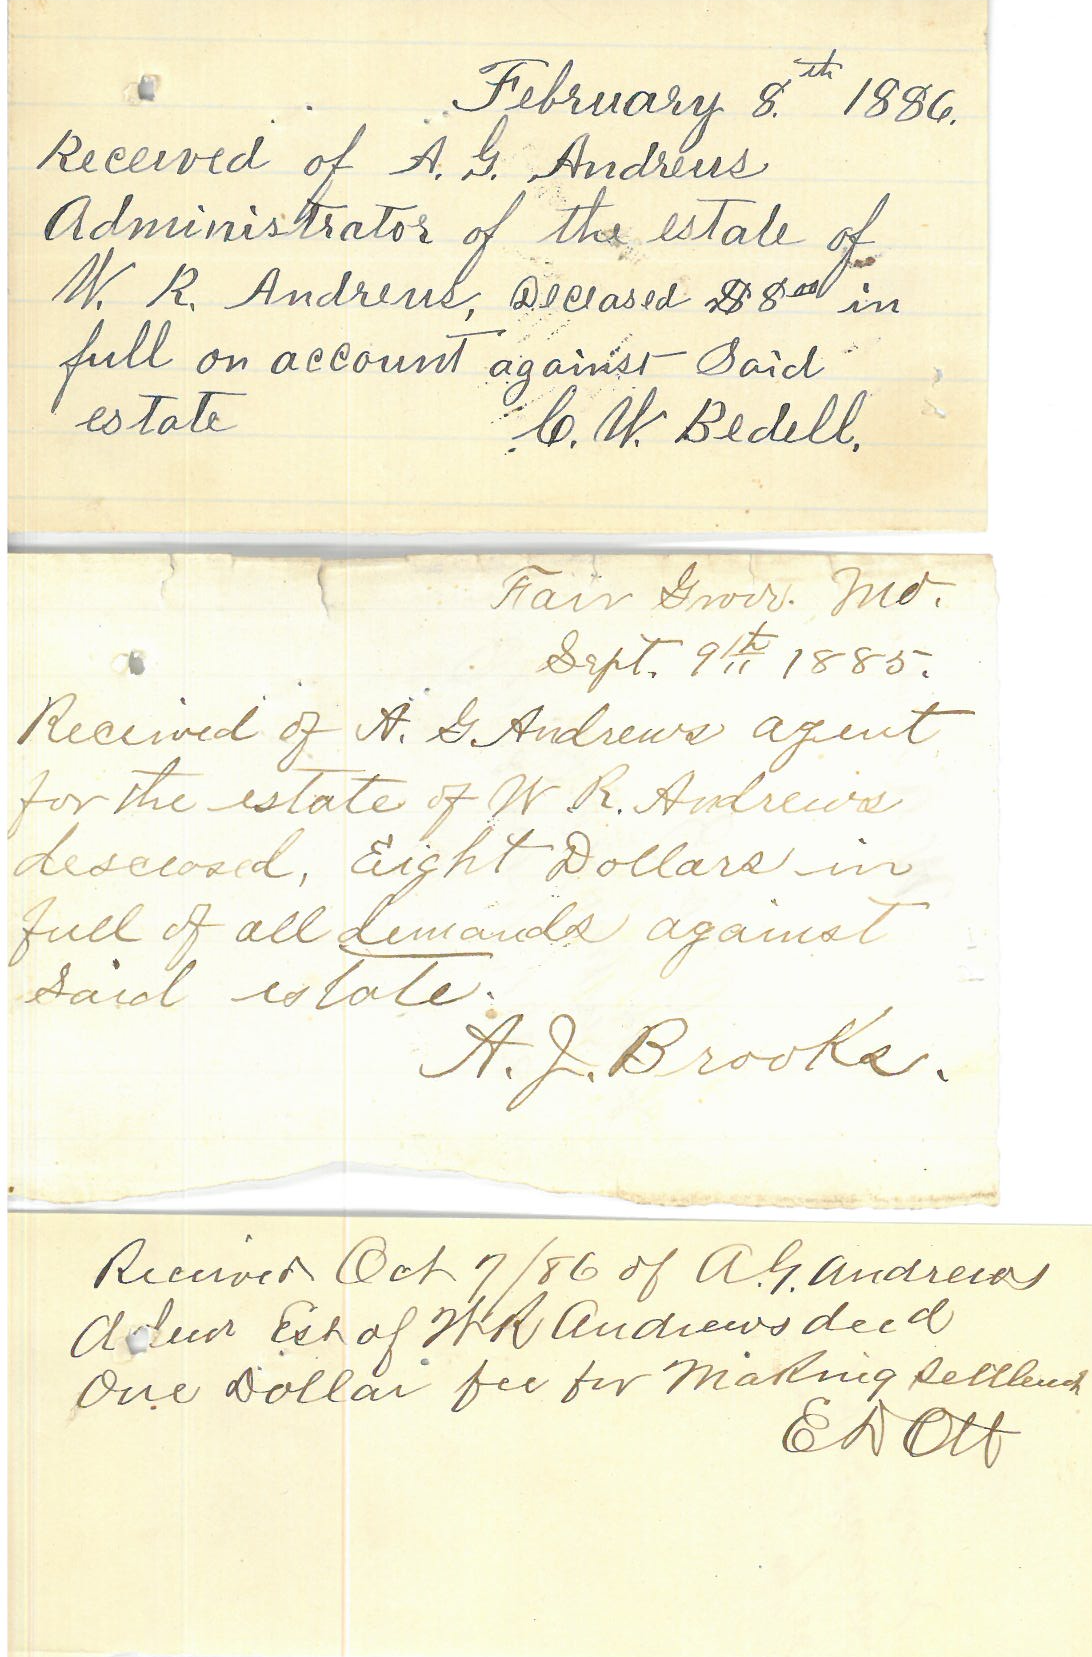 February 8.th 1886.
Received of A. G. Andrews
Administrator of the estate of
W. R. Andrews, Deceased $8 00 in
full on account against Said
estate C. W. Bedell.
Fair Grove. Mo.
Sept. 9th 1885.
Received of A. G. Andrews agent
for the estate of W R. Andrews
desceased, Eight Dollars in
full of all demands against
said estate.
A. J. Brooks.
Received Oct 7/86 of A. G. Andrews
Admr Est of W R Andrews decd
One Dollar fee for Making Settlemt
E D Ott